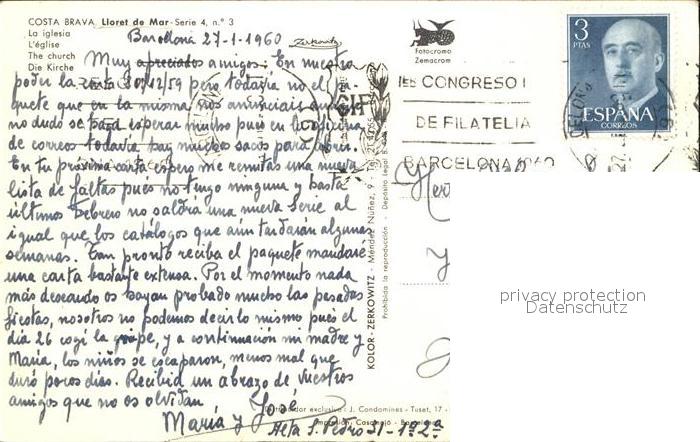 COSTA BRAVA. Lloret de Mar - Serie 4, n.° 3
La iglesia
L'église
The church
Die Kirche
Barcelona 27-1-1960
Zerkowitz
Fotocromo
Zemacrom
Muy apreciados amigos: En nuestro
poder la carta 30/12/59 pero todavía no el
quete que en la misma nos anunciais
no dudo se pasá esperar mucho pues en la oficina
de correos todavía hay muchos sacos para abrir.
En tu próxima carta espero me remitas una nueva
lista de faltas pués no tengo ninguna y hasta
últimos Febrero no saldrá una nueva serie al
igual que los catálogos que aún tardarán algunas
semanas. Tan pronto reciba el paquete mandaré
una carta bastante extensa. Por el momento nada
más deseando os hayan probado mucho las pasadas
fiestas, nosotros no podemos decir lo mismo pués el
día 26 cogí la gripe, y a continuación mi madre y
María, los niños se escaparon, menos mal que
duró pocos días. Recibid un abrazo de vuestros
amigos que no os olvidan
María y José
Alta S. Pedro 51-1º2ª
KOLOR-ZERKOWITZ - Méndez Núñez, 9
Prohibida la reproducción - Depósito Legal B.
exclusivo: J. Condomines - Tuset, 17 -
Impresión, Casanajó - Barcelona
CONGRESO I
DE FILATELIA
BARCELONA 1960
3
PTAS
ESPAÑA
CORREOS
privacy protection
Datenschutz